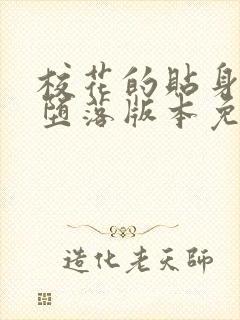 校花的贴身
堕落版本免
造化老天师